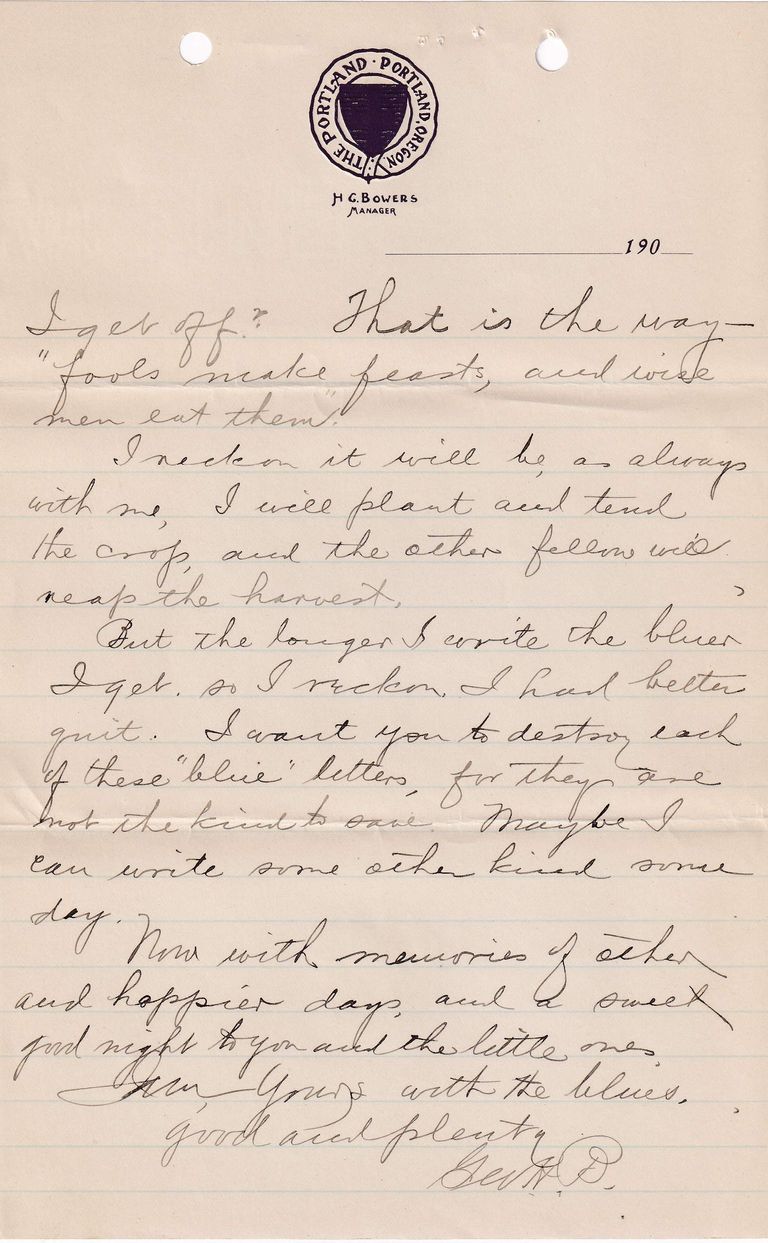 THE PORTLAND · PORTLAND, OREGON.
H C. BOWERS
MANAGER
190
I get off? That is the way—
"fools make feasts, and wise
men eat them".
I reckon it will be, as always
with me, I will plant and tend
the crop, and the other fellow will
reap the harvest.
But the longer I write the bluer
I get. so I reckon I had better
quit. I want you to destroy each
of these "blue" letters, for they are
not the kind to save. Maybe I
can write some other kind some
day.
Now with memories of other
and happier days, and a sweet
good night to you and the little ones
I am, Yours with the blues.
good and plenty
Geo H. B.